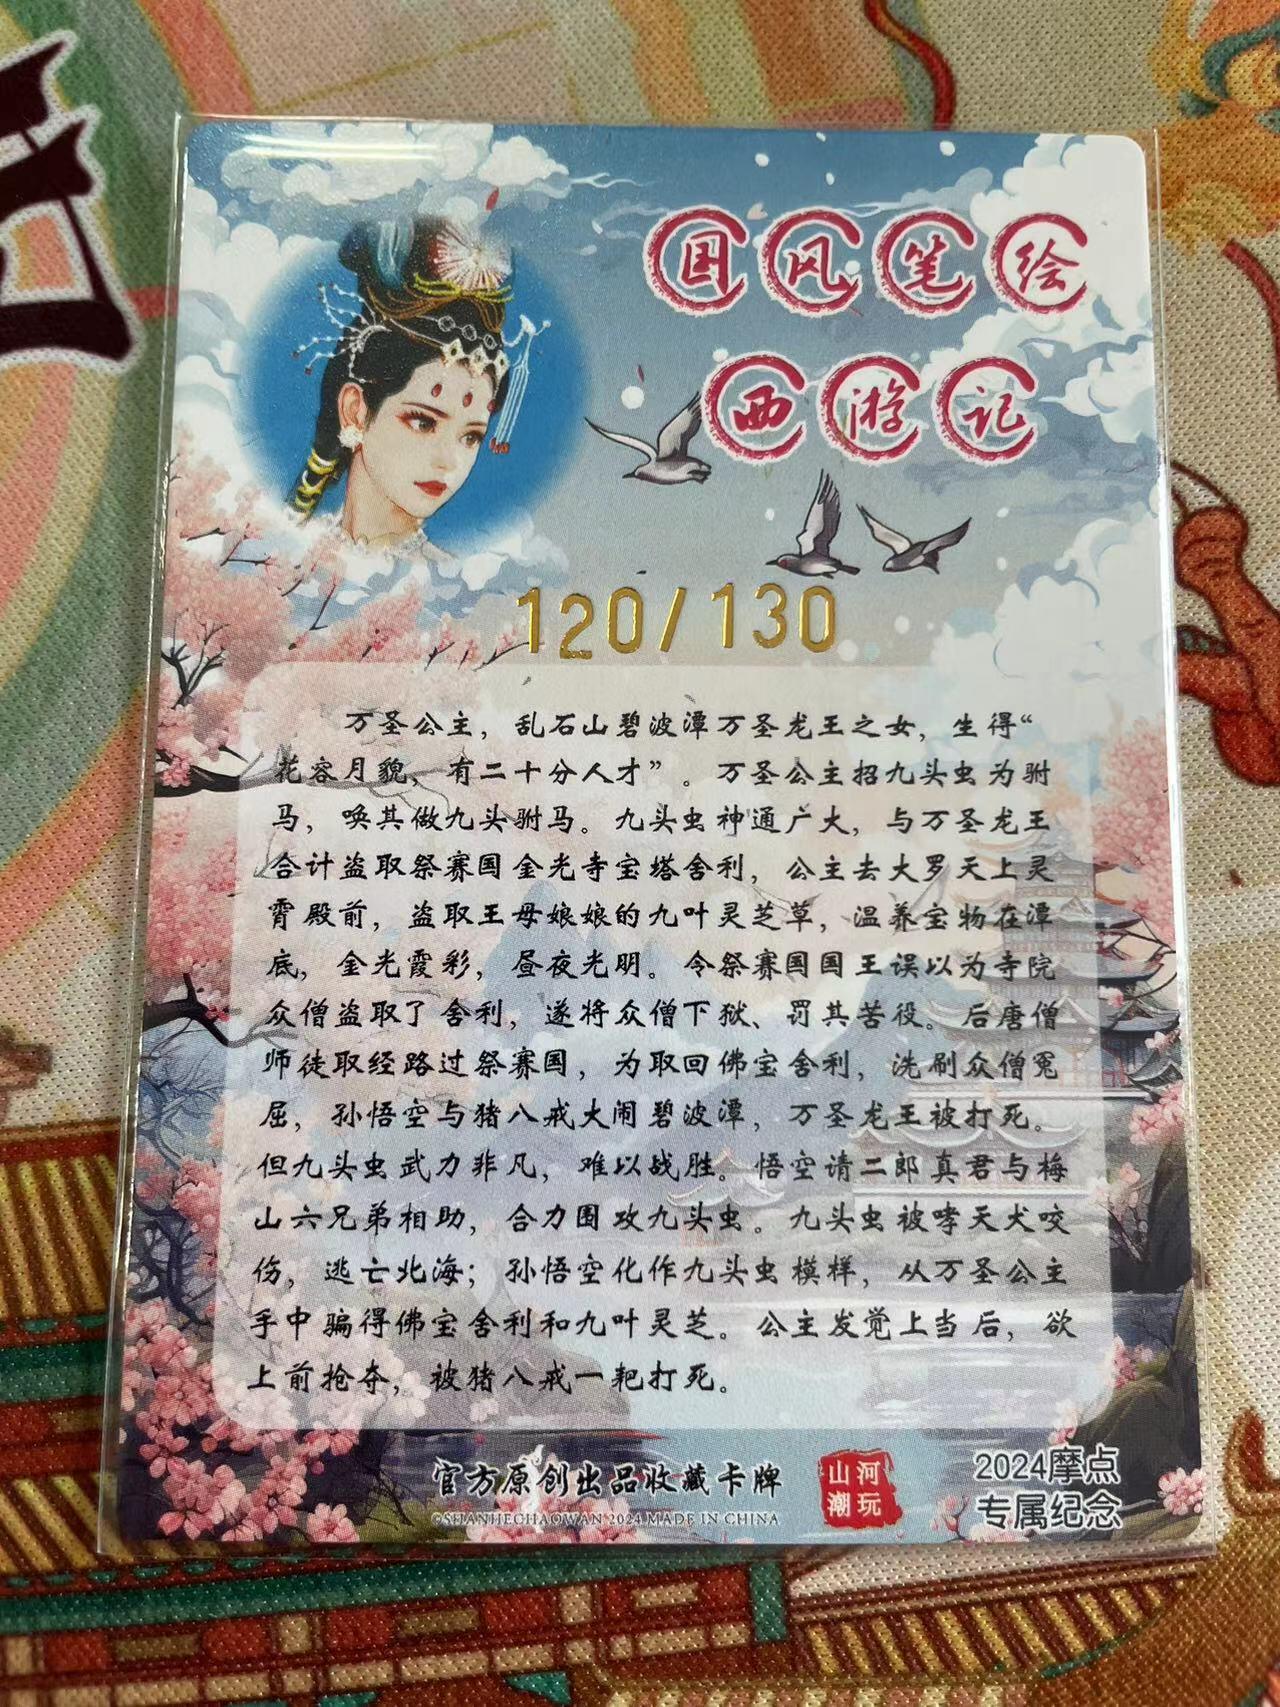 国风笔绘
西游记
120/130
万圣公主，乱石山碧波潭万圣龙王之女，生得“
花容月貌，有二十分人才”。万圣公主招九头虫为驸
马，唤其做九头驸马。九头虫神通广大，与万圣龙王
合计盗取祭赛国金光寺宝塔舍利，公主去大罗天上灵
霄殿前，盗取王母娘娘的九叶灵芝草，温养宝物在潭
底，金光霞彩，昼夜光明。令祭赛国国王误以为寺院
众僧盗取了舍利，遂将众僧下狱、罚其苦役。后唐僧
师徒取经路过祭赛国，为取回佛宝舍利，洗刷众僧冤
屈，孙悟空与猪八戒大闹碧波潭，万圣龙王被打死。
但九头虫武力非凡，难以战胜。悟空请二郎真君与梅
山六兄弟相助，合力围攻九头虫。九头虫被哮天犬咬
伤，逃亡北海；孙悟空化作九头虫模样，从万圣公主
手中骗得佛宝舍利和九叶灵芝。公主发觉上当后，欲
上前抢夺，被猪八戒一耙打死。
官方原创出品收藏卡牌
©SHANHECHAOWAN 2024 MADE IN CHINA
山河
潮玩
2024摩点
专属纪念